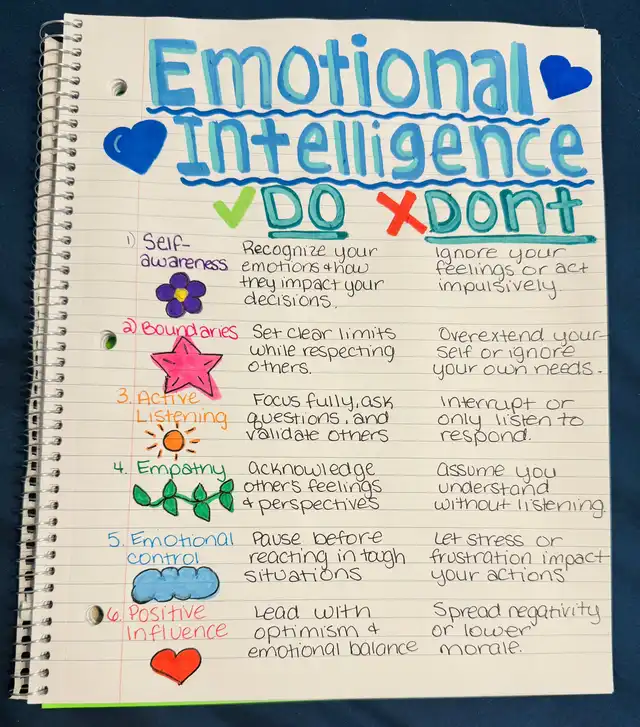 Emotional
Intelligence
DO Dont
1) Self-
awareness
Recognize your
emotions & how
they impact your
decisions.
Ignore your
feelings or act
impulsively.
2) Boundaries
Set clear limits
while respecting
others.
Overextend your-
self or ignore
your own needs.
3. Active
Listening
Focus fully, ask
questions, and
validate others
Interrupt or
only listen to
respond.
4. Empathy
acknowledge
others feelings
& perspectives
assume you
understand
without listening.
5. Emotional
control
Pause before
reacting in tough
situations
Let stress or
frustration impact
your actions
6. Positive
Influence
Lead with
optimism &
emotional balance
Spread negativity
or lower
morale.